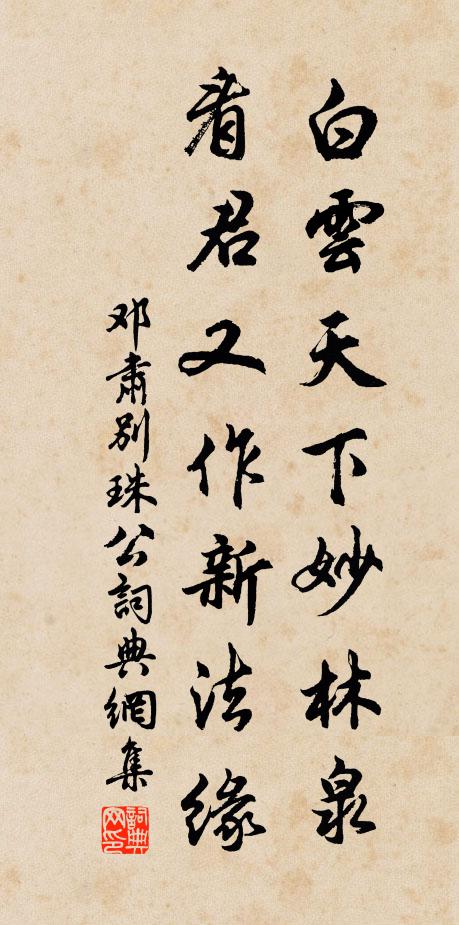 白雲天下妙林泉
看君又作新法緣
邓肅别珠公詞典網集
詞典网印